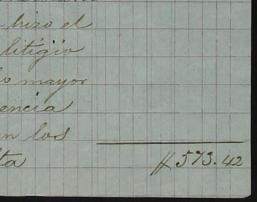 hizo el
litigio
mayor
encia
en los
ta $ 573.42